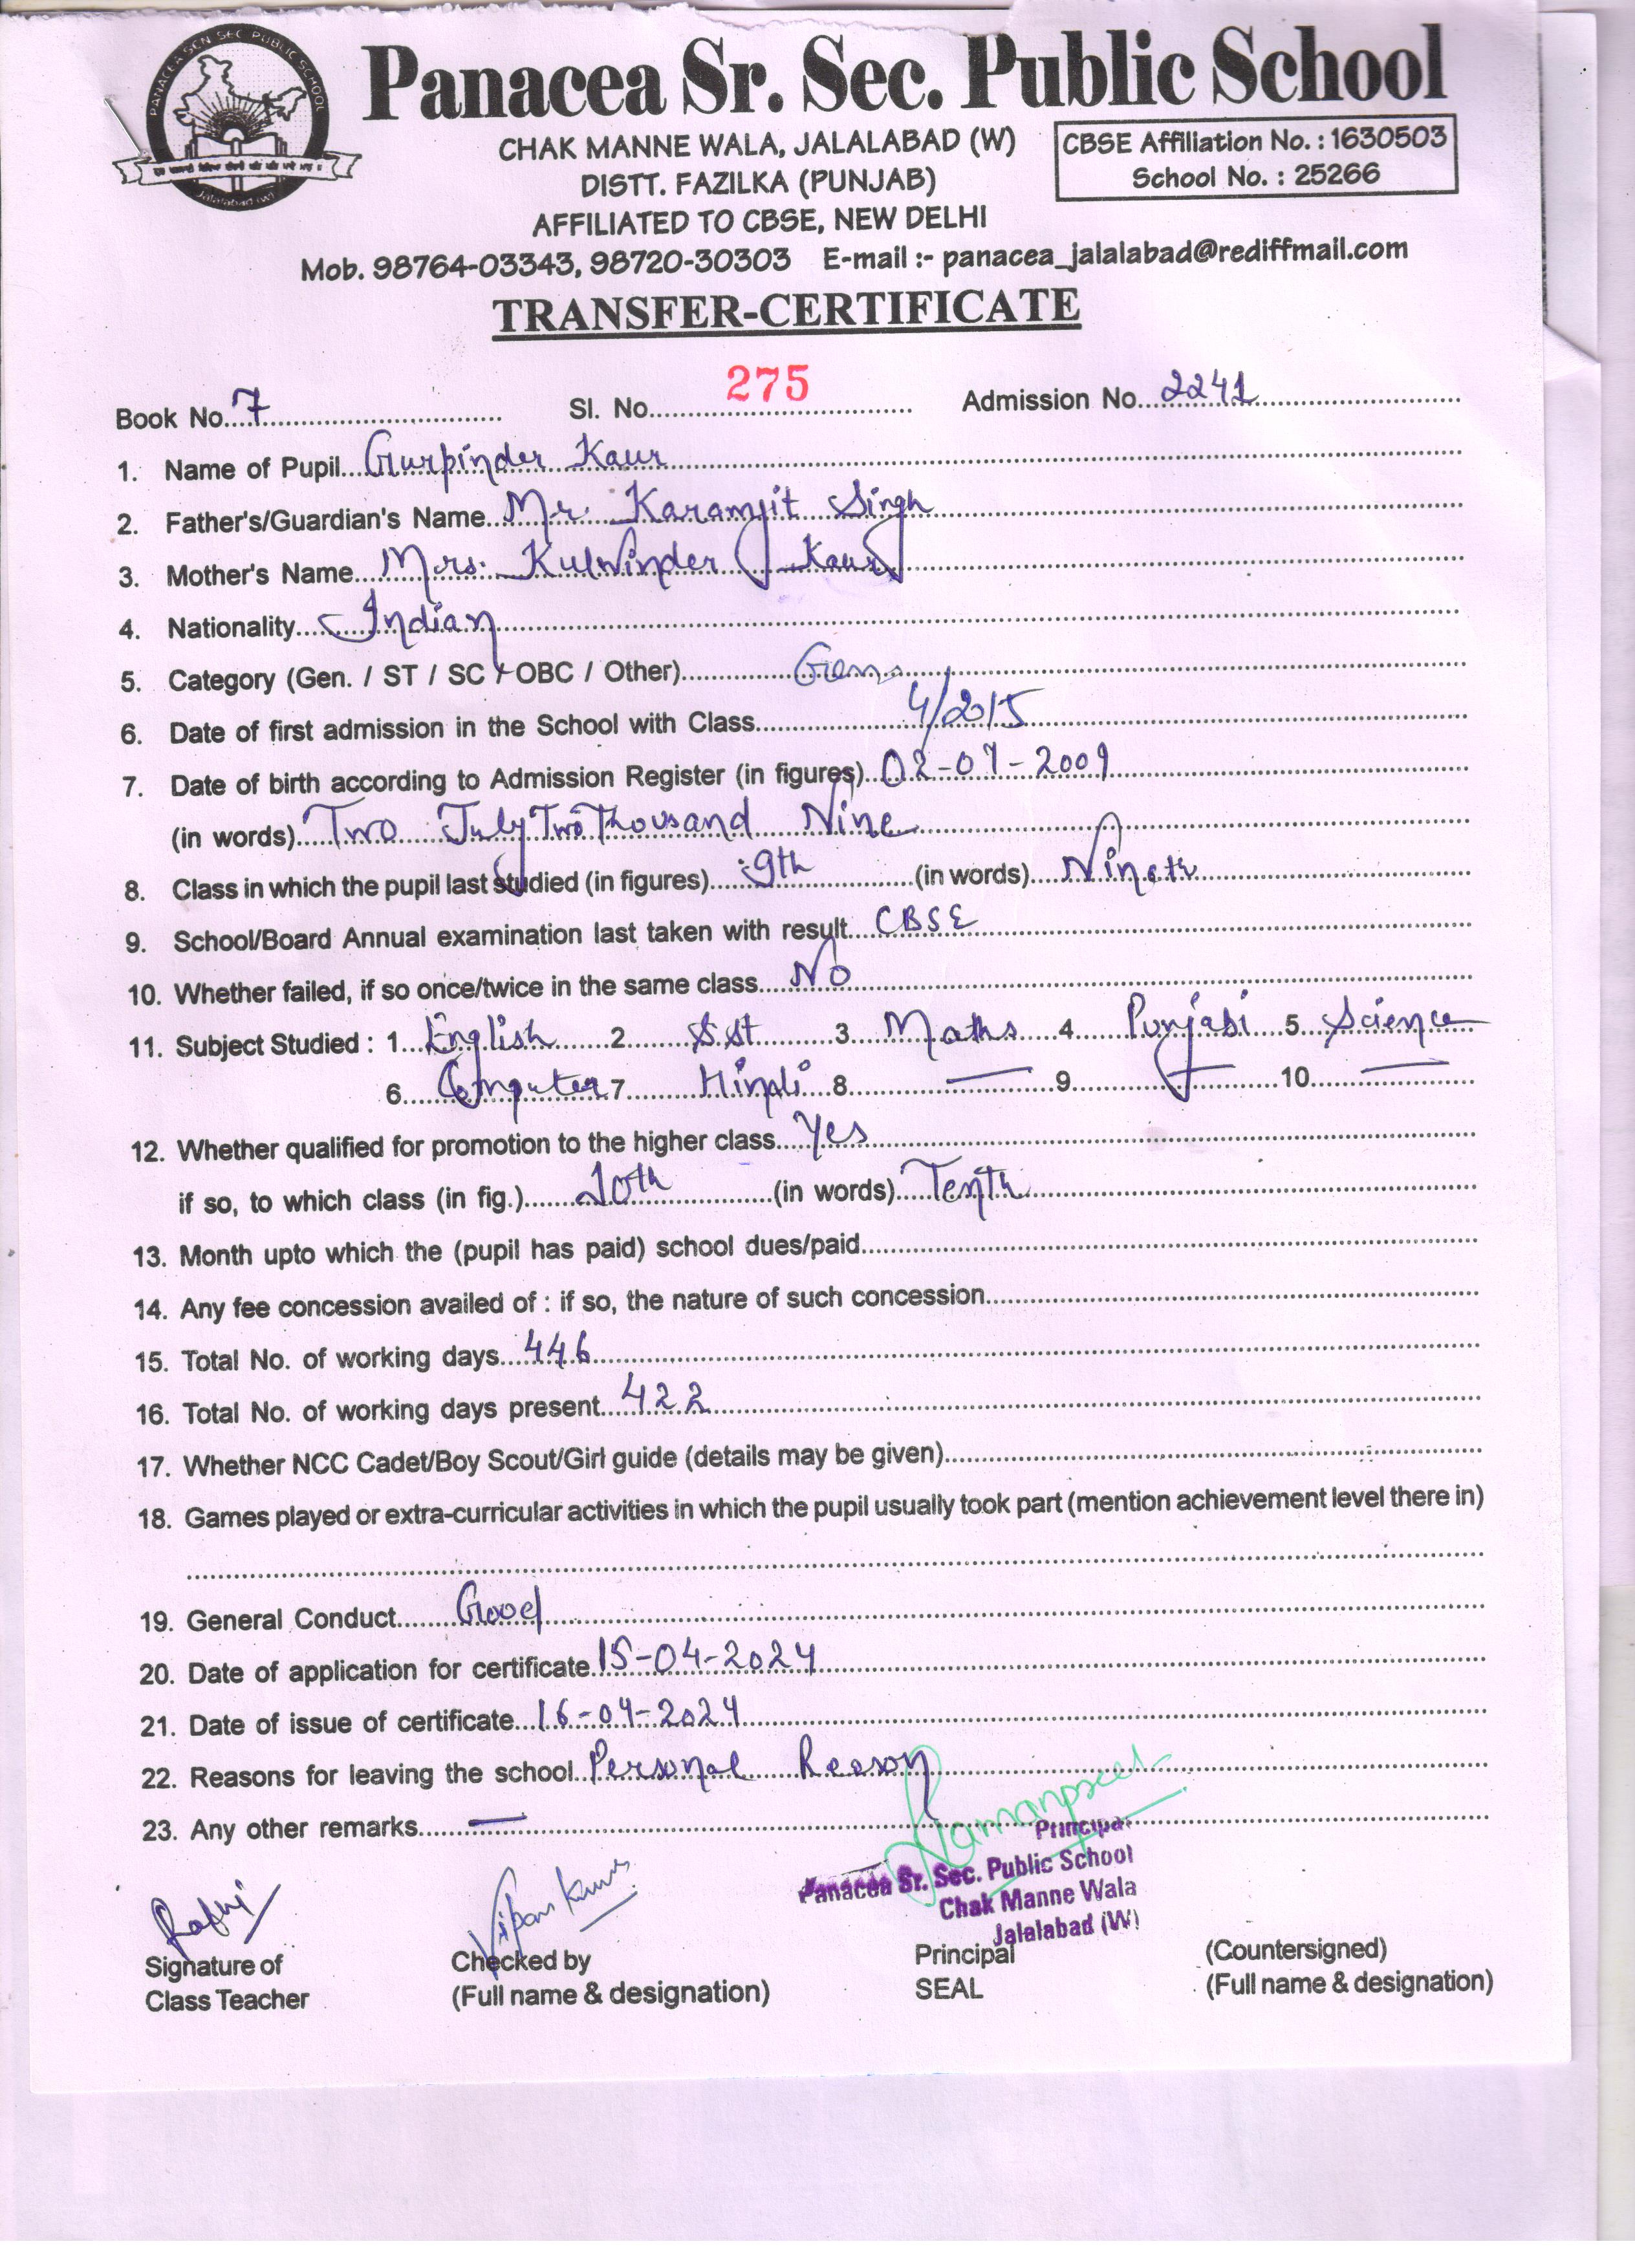 PANACEA SEN SEC PUBLIC SCHOOL
Jalalabad (W)
Panacea Sr. Sec. Public School
CHAK MANNE WALA, JALALABAD (W)
DISTT. FAZILKA (PUNJAB)
AFFILIATED TO CBSE, NEW DELHI
CBSE Affiliation No. : 1630503
School No. : 25266
Mob. 98764-03343, 98720-30303 E-mail :- panacea_jalalabad@rediffmail.com
TRANSFER-CERTIFICATE
Book No. 7 Sl. No. 275 Admission No. 2241
1. Name of Pupil Gurpinder Kaur
2. Father's/Guardian's Name Mr. Karamjit Singh
3. Mother's Name Mrs. Kulwinder Kaur
4. Nationality Indian
5. Category (Gen. / ST / SC / OBC / Other) Gen
6. Date of first admission in the School with Class 4/2015
7. Date of birth according to Admission Register (in figures) 02-07-2009
(in words) Two July Two Thousand Nine
8. Class in which the pupil last studied (in figures) 9th (in words) Nineth
9. School/Board Annual examination last taken with result CBSE
10. Whether failed, if so once/twice in the same class No
11. Subject Studied : 1 English 2 S.St 3 Maths 4 Punjabi 5 Science
6 Computer 7 Hindi 8 — 9 — 10 —
12. Whether qualified for promotion to the higher class Yes
if so, to which class (in fig.) 10th (in words) Tenth
13. Month upto which the (pupil has paid) school dues/paid
14. Any fee concession availed of : if so, the nature of such concession
15. Total No. of working days 446
16. Total No. of working days present 422
17. Whether NCC Cadet/Boy Scout/Girl guide (details may be given)
18. Games played or extra-curricular activities in which the pupil usually took part (mention achievement level there in)
19. General Conduct Good
20. Date of application for certificate 15-04-2024
21. Date of issue of certificate 16-04-2024
22. Reasons for leaving the school Personal Reason
23. Any other remarks —
Principal
Panacea Sr. Sec. Public School
Chak Manne Wala
Jalalabad (W)
Signature of
Class Teacher
Checked by
(Full name & designation)
Principal
SEAL
(Countersigned)
(Full name & designation)